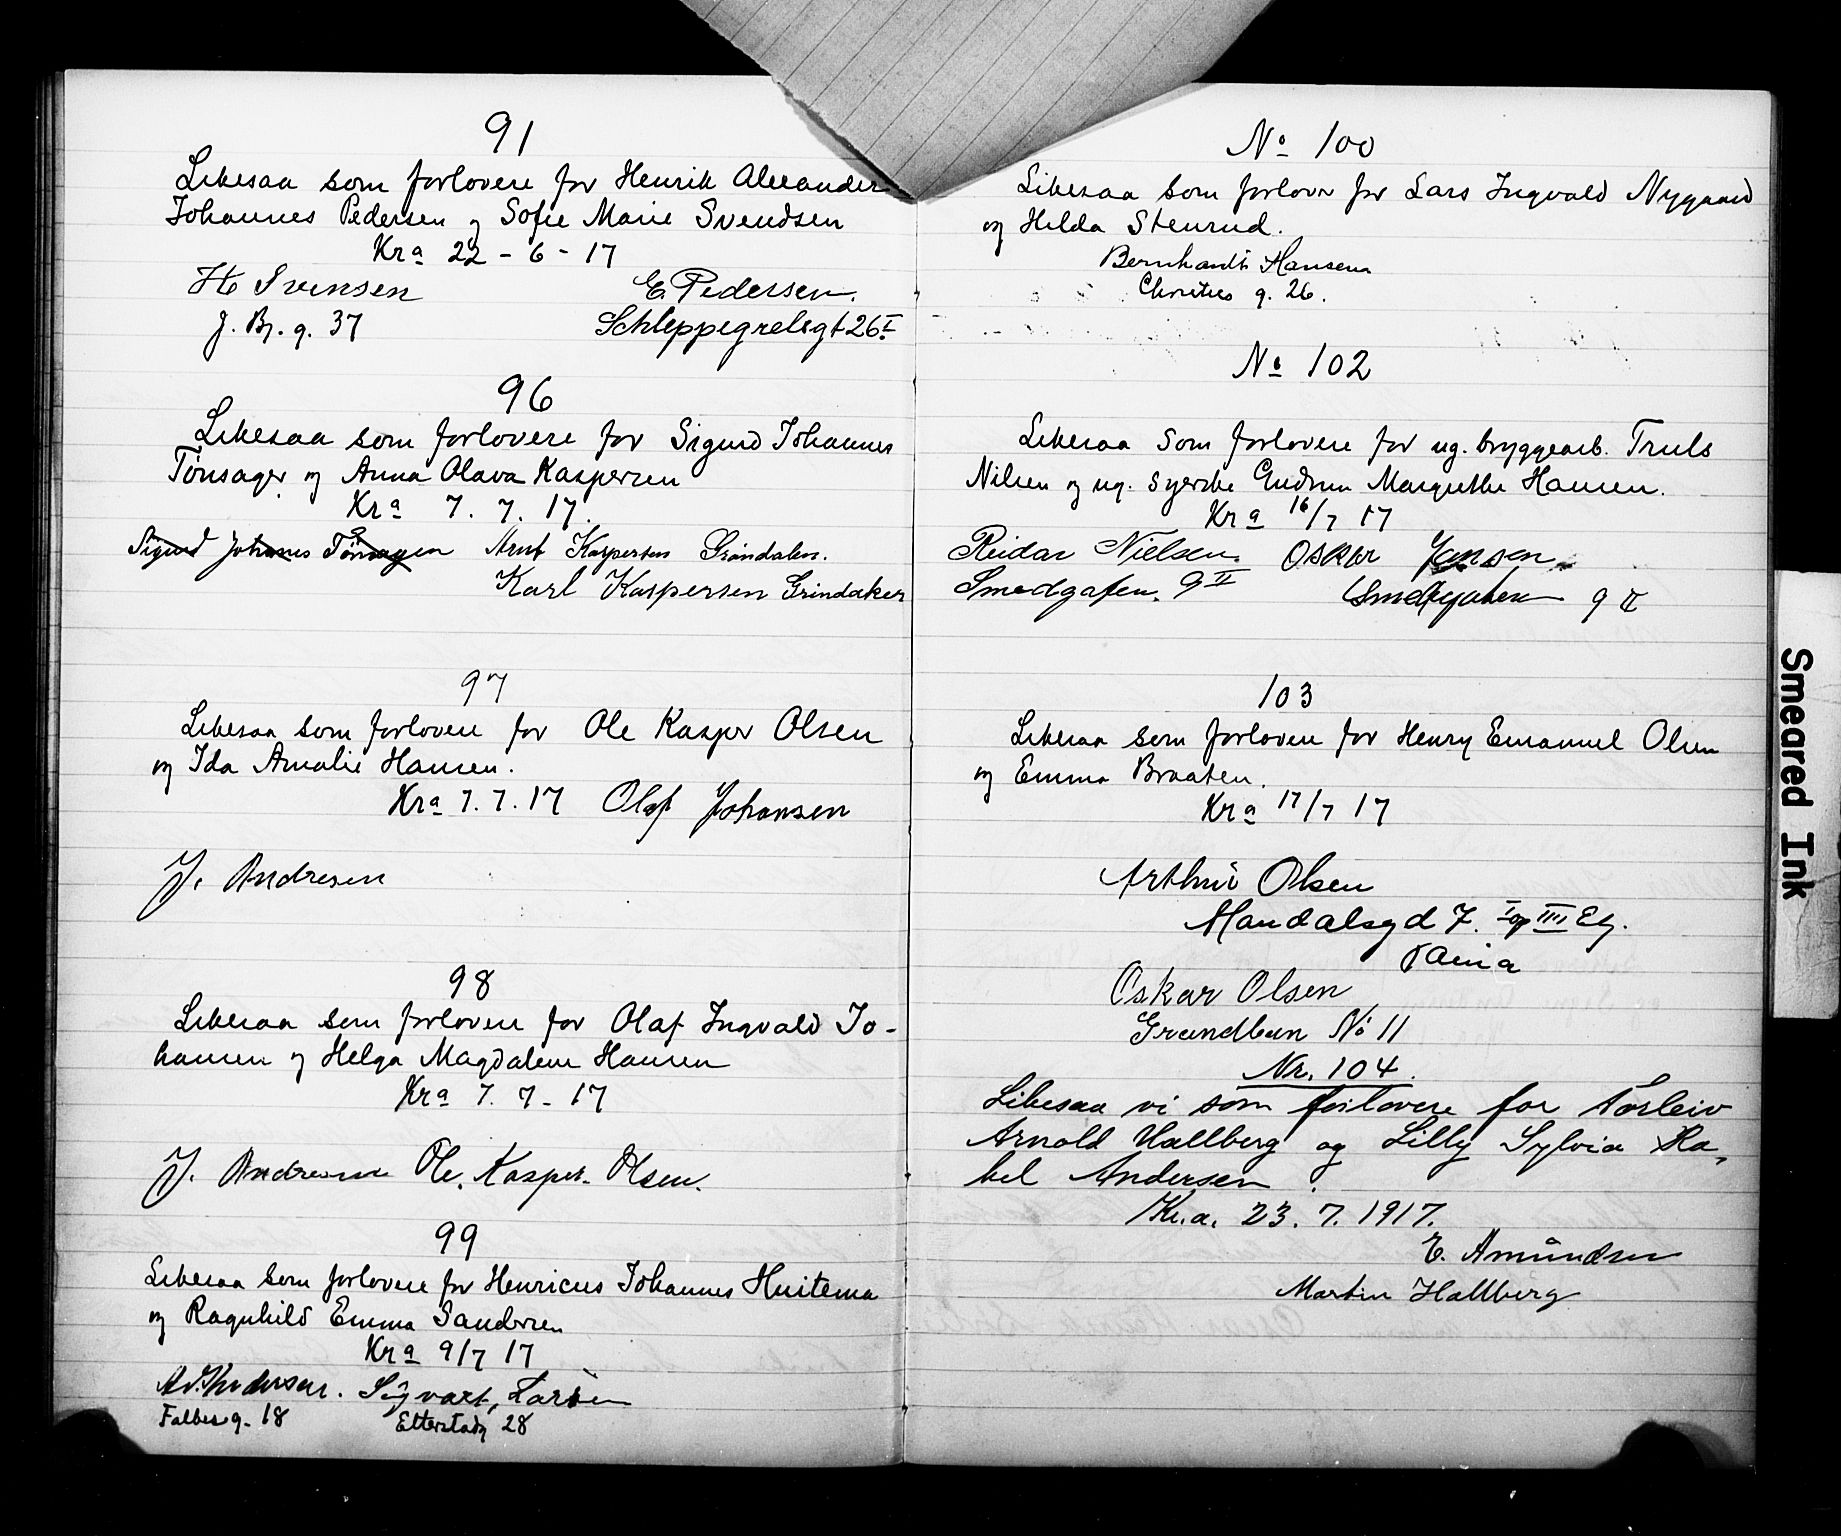 91
Likesaa som forlovere for Henrik Alexander
Johannes Pedersen og Sofie Marie Svendsen
Kra 22 - 6 - 17
H. Svensen E. Pedersen.
J. Bj. g. 37 Schleppegrelsgt 26 I
96
Likesaa som forlovere for Sigurd Johannes
Tonsager og Anna Olava Kaspersen
Kra 7. 7. 17.
Sigurd Johanes Arnt Kaspersen Grindalen.
Karl Kaspersen Grindaker
97
Likesaa som forlovere for Ole Kasper Olsen
og Ida Amalie Hansen.
Kra 7. 7. 17 Olaf Johansen
J. Andresen
98
Likesaa som forlovere for Olaf Ingvald Jo-
hansen og Helga Magdalene Hansen
Kra 7. 7 - 17
J. Andresen Ole. Kasper. Olsen.
99
Likesaa som forlovere for Henricus Johannes Huitema
og Ragnhild Emma Sandersen
Kra 9/7 17
Sigvart, Larsen
Falbesg. 18 Etterstadg 28
No 100
Likesaa som forlover for Lars Ingvald Nygaard
og Hilda Stenrud.
Bernhardt Hansen
Christies g. 26.
No 102
Likesaa som forlovere for ug. bryggearb. Truls
Nilsen og ug. syerske Gudrun Margrethe Hansen.
Kra 16/7 17
Reidar Nielsen. Oskar Jensen
Smedgaten. 9 II Smedgaten 9 II
103
Likesaa som forlovere for Henry Emanuel Olsen
og Emma Braaten.
Kra 17/7 17
Arthur Olsen
Mandalsgd 7. I op III Eg.
Oskar Olsen
No 11
Nr. 104.
Likesaa vi som forlovere for Torleiv
Arnold Hallberg og Lilly Sylvia Ra-
kel Andersen.
Kr.a. 23. 7. 1917.
E. Amundsen
Martin Hallberg
Smeared Ink